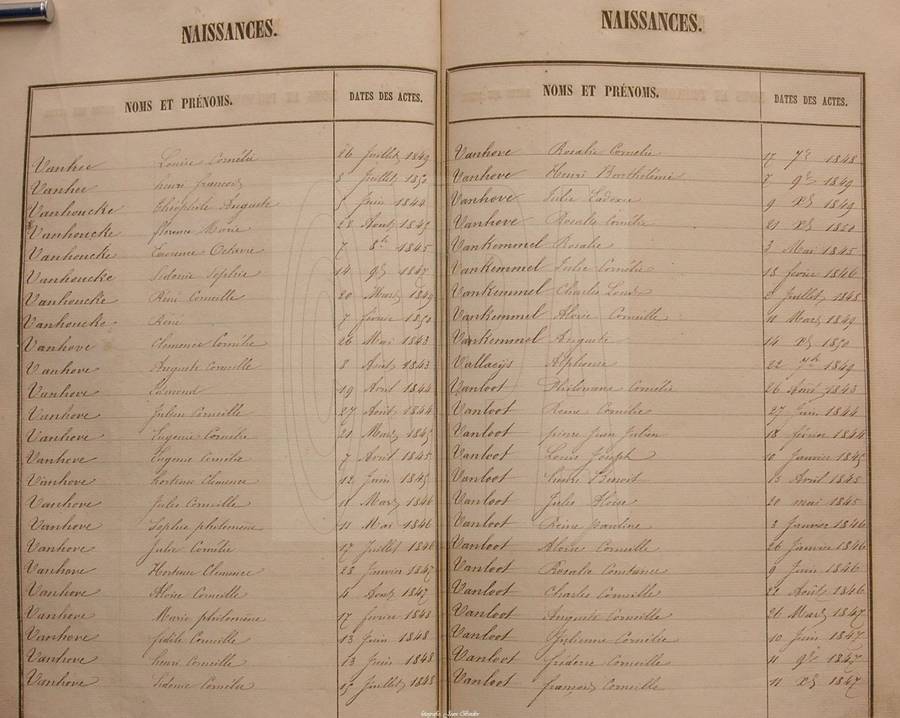 NAISSANCES.
NOMS ET PRÉNOMS. DATES DES ACTES.
Vanhee Louise Cornélie 26 Juillet 1849
Vanhee henri francois 8 Juillet 1850
Vanhoucke Théophile Auguste Juin 1844
Vanhoucke florence Marie 28 Août 1845
Vanhoucke Octavie 7 8bre 1845
Vanhoucke Sidonie Sophie 14 9bre 1847
Vanhoucke Réné Corneille 20 Mars 1849
Vanhoucke Réné 7 février 1850
Vanhove Clemence Cornélie 26 Mai 1843
Vanhove Auguste Corneille 8 Août 1843
Vanhove Edmond 19 Avril 1844
Vanhove Julien Corneille 27 Août 1844
Vanhove Eugenie Cornélie 21 Mars 1845
Vanhove Eugene Cornélie 7 Avril 1845
Vanhove hortense Clemence 12 Juin 1845
Vanhove Jules Corneille 11 Mars 1846
Vanhove Sophie philomène 11 Mai 1846
Vanhove Julie Cornélie 17 Juillet 1846
Vanhove Hortense Clemence 28 Janvier 1847
Vanhove Aloïse Corneille Août 1847
Vanhove Marie philomène 17 février 1848
Vanhove fidèle Corneille 13 Juin 1848
Vanhove henri Corneille 13 Juin 1848
Vanhove Sidonie Cornélie 15 Juillet 1848
NAISSANCES.
NOMS ET PRÉNOMS. DATES DES ACTES.
Vanhove Rosalie Cornelie 17 7bre 1848
Vanhove Henri Barthélémi 7 9bre 1849
Vanhove Julie Ludovie 9 Xbre 1849
Vanhove Rosalie Cornélie 21 Xbre 1850
VanKemmel Rosalie 3 Mai 1845
VanKemmel Julie Cornélie 13 février 1846
VanKemmel Charles Louis Juillet 1848
VanKemmel Aloïse Corneille 11 Mars 1849
VanKemmel Auguste 14 Xbre 1850
Vallaeys Alphonse 22 7bre 1849
Vanloot Philomène Cornélie 26 Août 1843
Vanloot Reine Cornélie 27 Juin 1844
Vanloot pierre Jean Julien 18 février 1844
Vanloot Louis Joseph 10 Janvier 1845
Vanloot henri Benoit 13 Avril 1845
Vanloot Jules Aloïse 20 mai 1845
Vanloot Reine pauline 3 Janvier 1846
Vanloot Aloïse Corneille 26 Janvier 1846
Vanloot Rosalie Constance 9 Juin 1846
Vanloot Charles Corneille 22 Août 1846
Vanloot Auguste Corneille 21 Mars 1847
Vanloot Julienne Cornélie 10 Juin 1847
Vanloot fréderic Corneille 11 9bre 1847
Vanloot francois Corneille 11 Xbre 1847